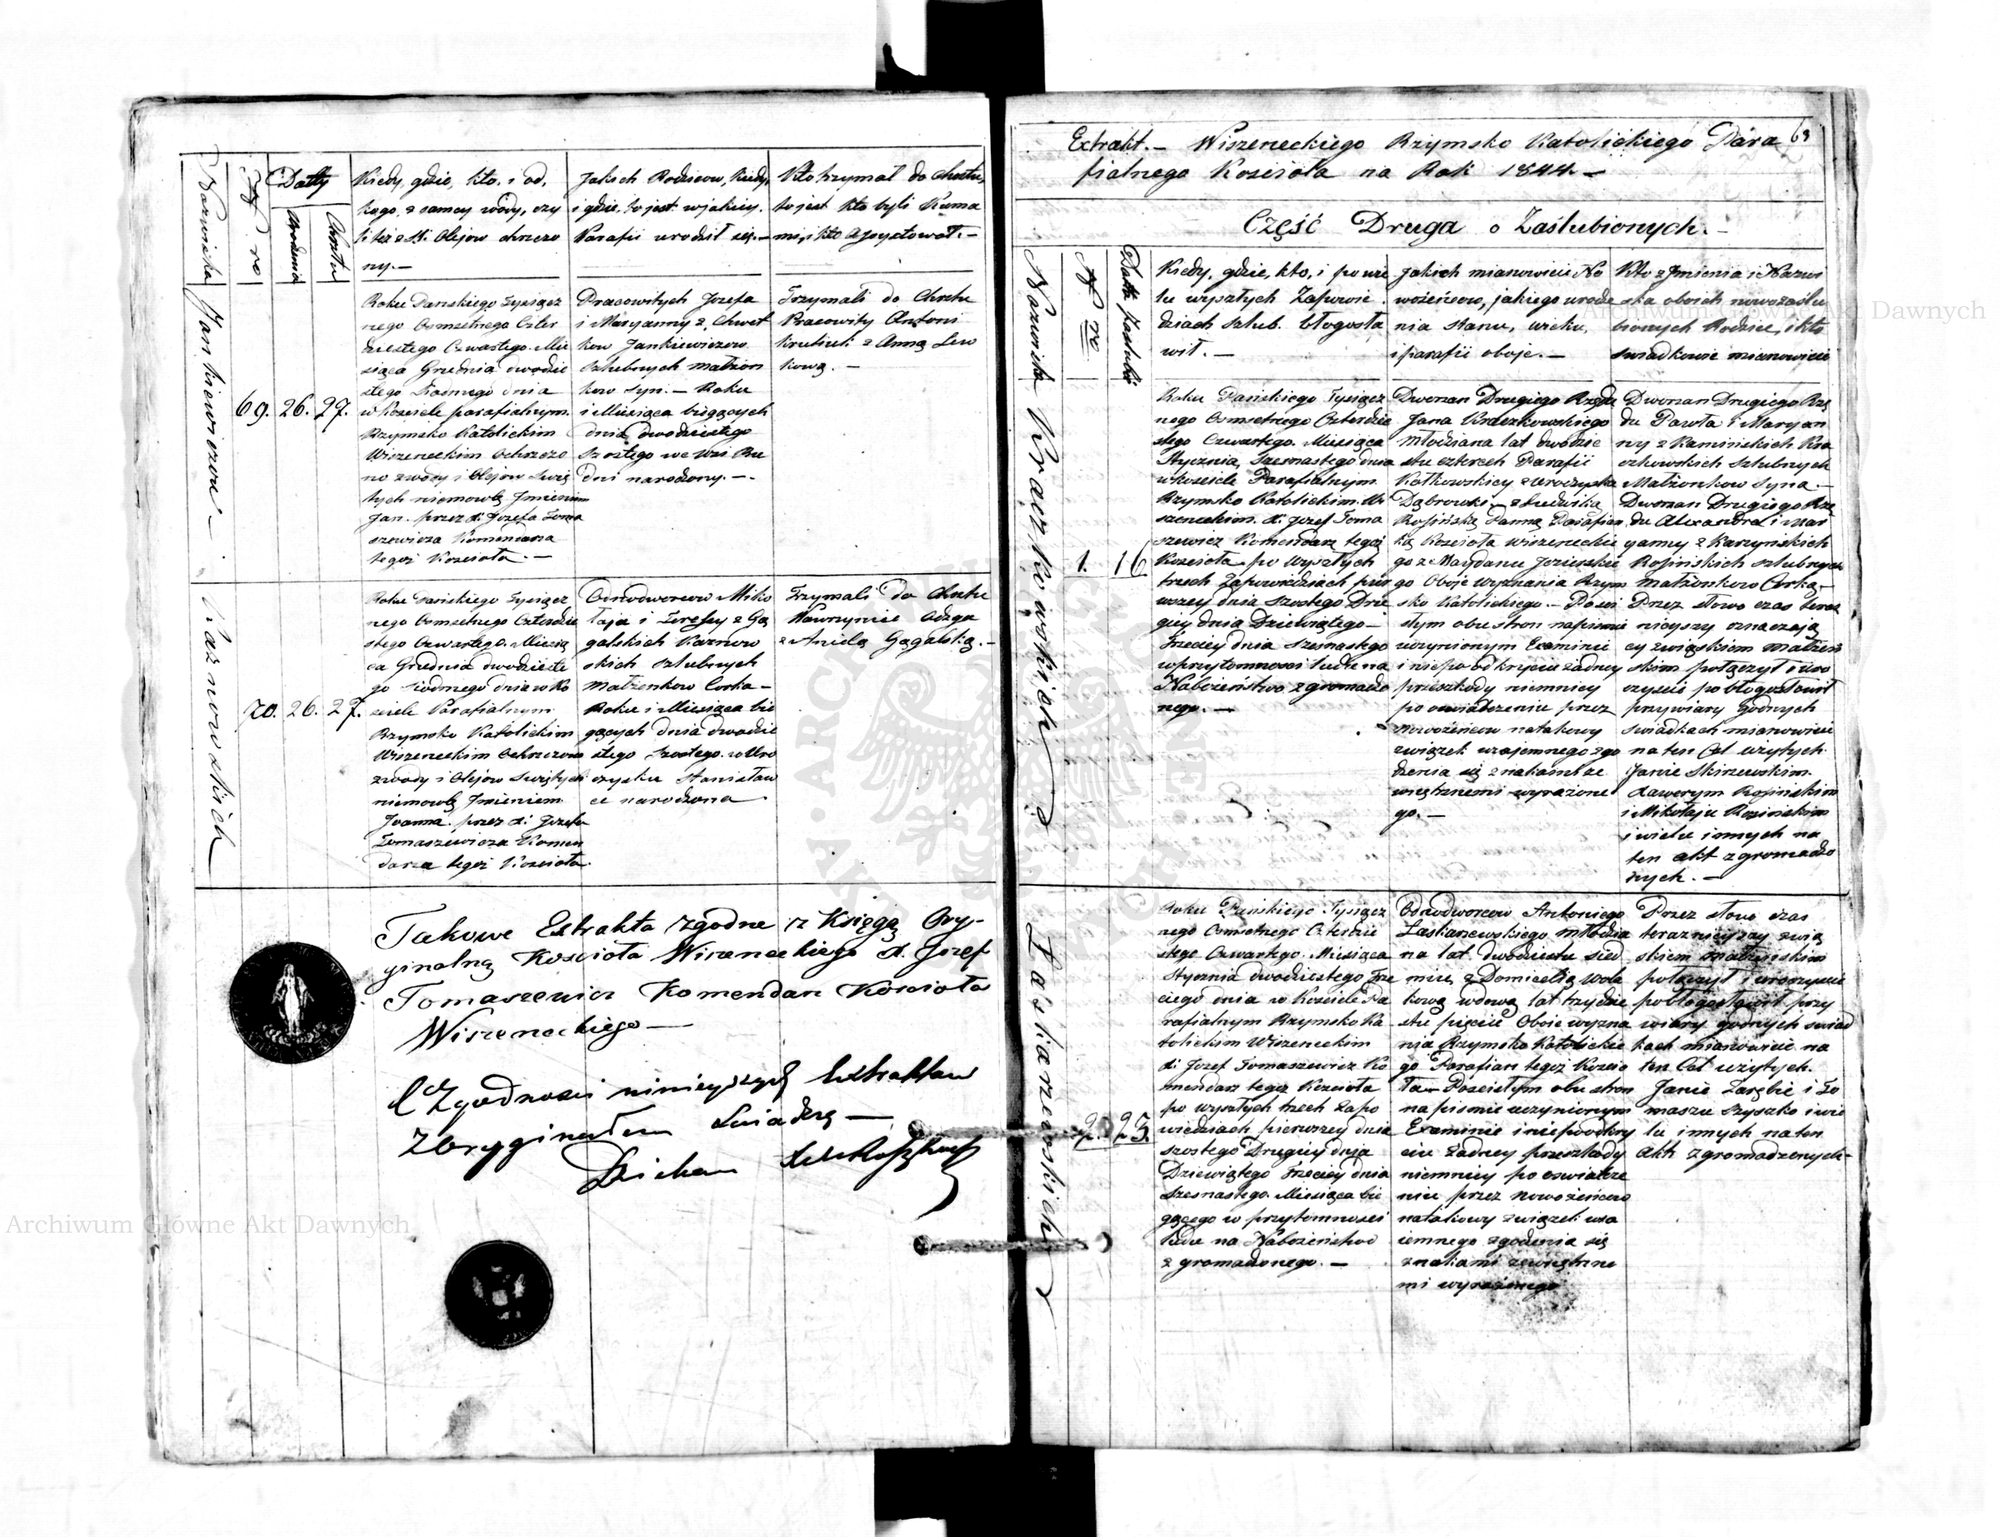 Nazwiska
No
Datty
Urodzenia
Chrztu
Kiedy, gdzie, kto, i od,
kogo, z samey wody, czy
li też z SS. Olejow chrzczo
ny.—
Jakich Rodzicow, kiedy,
i gdzie, to jest w jakiey.
Parafii urodził się.—
Kto trzymał do Chrztu,
to jest kto byli Kuma
mi, i kto Assystował.—
Jankiewiczow
69. 26. 27.
Roku Pańskiego Tysiącz
nego Osmsetnego Czter
dziestego Czwartego. Mie
siąca Grudnia dwodzie
stego Siodmego dnia
w Kosciele parafialnym.
Rzymsko Katolickim
Wiszeneckim Ochrzczo
no z wody i Olejow Swię
tych niemowlę Jmieniem
Jan. przez X: Jozefa Toma
szewicza Komendarza
tegoż Kościoła. —
Pracowitych Jozefa
i Maryanny z, Chwet
kow Jankiewiczow
Szlubnych małżon
kow Syn. — Roku
i Miesiąca bieżących
dnia dwodziestego
Szostego we Wsi Ru
dni narodzony. —.
Trzymali do Chrztu
Pracowity Antoni
z Anną Lew
kową. —
Kaznowskich
70. 26. 27.
Roku Pańskiego Tysiącz
nego Osmsetnego Czterdzie
stego Czwartego. Miesią
ca Grudnia dwodzieste
go Siodmego dnia w Ko
sciele Parafialnym
Rzymsko Katolickim
Wiszeneckim Ochrzczono
z wody i Olejow Swiętych
niemowlę Jmieniem
Joanna. przez X: Jozefa
Tomaszewicza Komen
darza tegoż Kościoła.
Odnodworcow Miko
łaja i Teressy z Gą
galskich Kaznow
skich Szlubnych
Małżonkow Corka —
Roku i Miesiąca bie
żących dnia dwodzie
stego Szostego. w Uro
czysku Stanisław
ce narodzona
Trzymali do Chrztu
Wawrzyniec
z Anielą Gągalską. —
Takowe Extrakta zgodne z Księgą Ory-
ginalną Kościoła Wiszeneckiego X. Jozef
Tomaszewicz Komendarz Kościoła
Wiszeneckiego —
O Zgodnosci ninieyszych Extraktow
z Oryginałem Swiadczę —
Dziekan
63
Extrakt. — Wiszeneckiego Rzymsko Katolickiego Para
fialnego Kościoła na Rok 1844. —
Część Druga o Zaślubionych. —
Nazwiska
No
Datta Zaślubin
Kiedy, gdzie, kto, i po wie
lu wyszłych Zapowie
dziach szlub. błogosła
wił. —
Jakich mianowicie No
wożeńcow, jakiego urodze
nia stanu, wieku,
i parafii oboje. —
Kto z Jmienia i Nazwi
ska oboich nowozaślu
bionych Rodzice, i kto
swiadkowie mianowicie
Kraczkowskich
1. 16
Roku Pańskiego Tysiącz
nego Osmsetnego Czterdzie
stego Czwartego. Miesiąca
Stycznia, Szesnastego dnia
w kosciele Parafialnym
Rzymsko Katolickim Wi
szeneckim. X: Jozef Toma
szewicz Komendarz tegoż
Kościoła po Wyszłych
trzech Zapowiedziach pier
wszey dnia Szostego Dru
giey dnia Dziewiątego —
Trzeciey dnia Szesnastego
w przytomnosci ludu na
Nabożeństwo zgromadzo
nego. —
Dworzan Drugiego Rzędu
Jana Kraczkowskiego
Młodziana lat dwodzie
stu czterech Parafii
Kołkowskiey z Uroczyska
Dąbrowki. — z Ludwiką
Rosińską Panną Parafian
ką Kościoła Wiszeneckie
go z Maydanu Jezierskie
go Oboje Wyznania Rzym
sko Katolickiego. — Posci
słym obu stron napismie
uczynionym Examinie
i niepoodkryciu żadney
przeszkody niemniey
po oswiadczeniu przez
Nowożeńcow natakowy
związek wzajemnego zgo
dzenia się znakami ze
wnętrznemi wyrażone
go. —
Dworzan Drugiego Rzę
du Pawła i Maryan
ny z Kaminskich Kra
czkowskich Szlubnych
Małżonkow Syna. —
Dworzan Drugiego Rzę
du Alexandra i Mar
yanny z Karzyńskich
Rosińskich Szlubnych
małżonkow Corką —
Przez słowo czas teraz
nieyszy oznaczają
cy związkiem małżeń
skim połączył i uro
czyscie pobłogosławił
przy wiary Godnych
Swiadkach mianowicie
na ten Cel użytych.
Janie Skirzewskim.
Xawerym Rosińskim
i Mikołaju Rosińskim
i wielu innych na
ten akt zgromadzo
nych. —
Laskarzewskich
2. 23.
Roku Pańskiego Tysiącz
nego Osmsetnego Czterdzie
stego Czwartego. Miesiąca
Stycznia dwodziestego Trze
ciego dnia w Kosciele Pa
rafialnym Rzymsko Ka
tolickim Wiszeneckim
X: Jozef Tomaszewicz Ko
mendarz tegoż Kościoła
po wyszłych trzech Zapo
wiedziach pierwszey dnia
Szostego Drugiey dnia
Dziewiątego Trzeciey dnia
Szesnastego Miesiąca bie
żącego w przytomnosci
ludu na Nabożeństwo
zgromadzonego. —
Odnodworcow Antoniego
Laskarzewskiego młodzia
na lat dwodziestu sied
miu, z Domicelą Wole
kową wdową lat trzydzie
stu pięciu Oboje wyzna
nia Rzymsko Katolickie
go Parafian tegoż Koscio
ła — Poscisłym obu stron
na pismie uczynionym
Examinie i niepoodkry
ciu żadney przeszkody
niemniey po oswiadcze
niu przez Nowożeńcow
natakowy związek wza
iemnego zgodzenia się
znakami zewnętrzne
mi wyrażonego
Przez słowo czas
teraznieyszy zwią
zkiem małżeńskim
połączył i uroczyscie
pobłogosławił przy
wiary godnych swiad
kach mianowicie na
ten Cel użytych.
Janie Zarębie i To
maszu Szyszko i wie
lu innych na ten
Akt zgromadzonych —
Archiwum Główne Akt Dawnych
Archiwum Główne Akt Dawnych